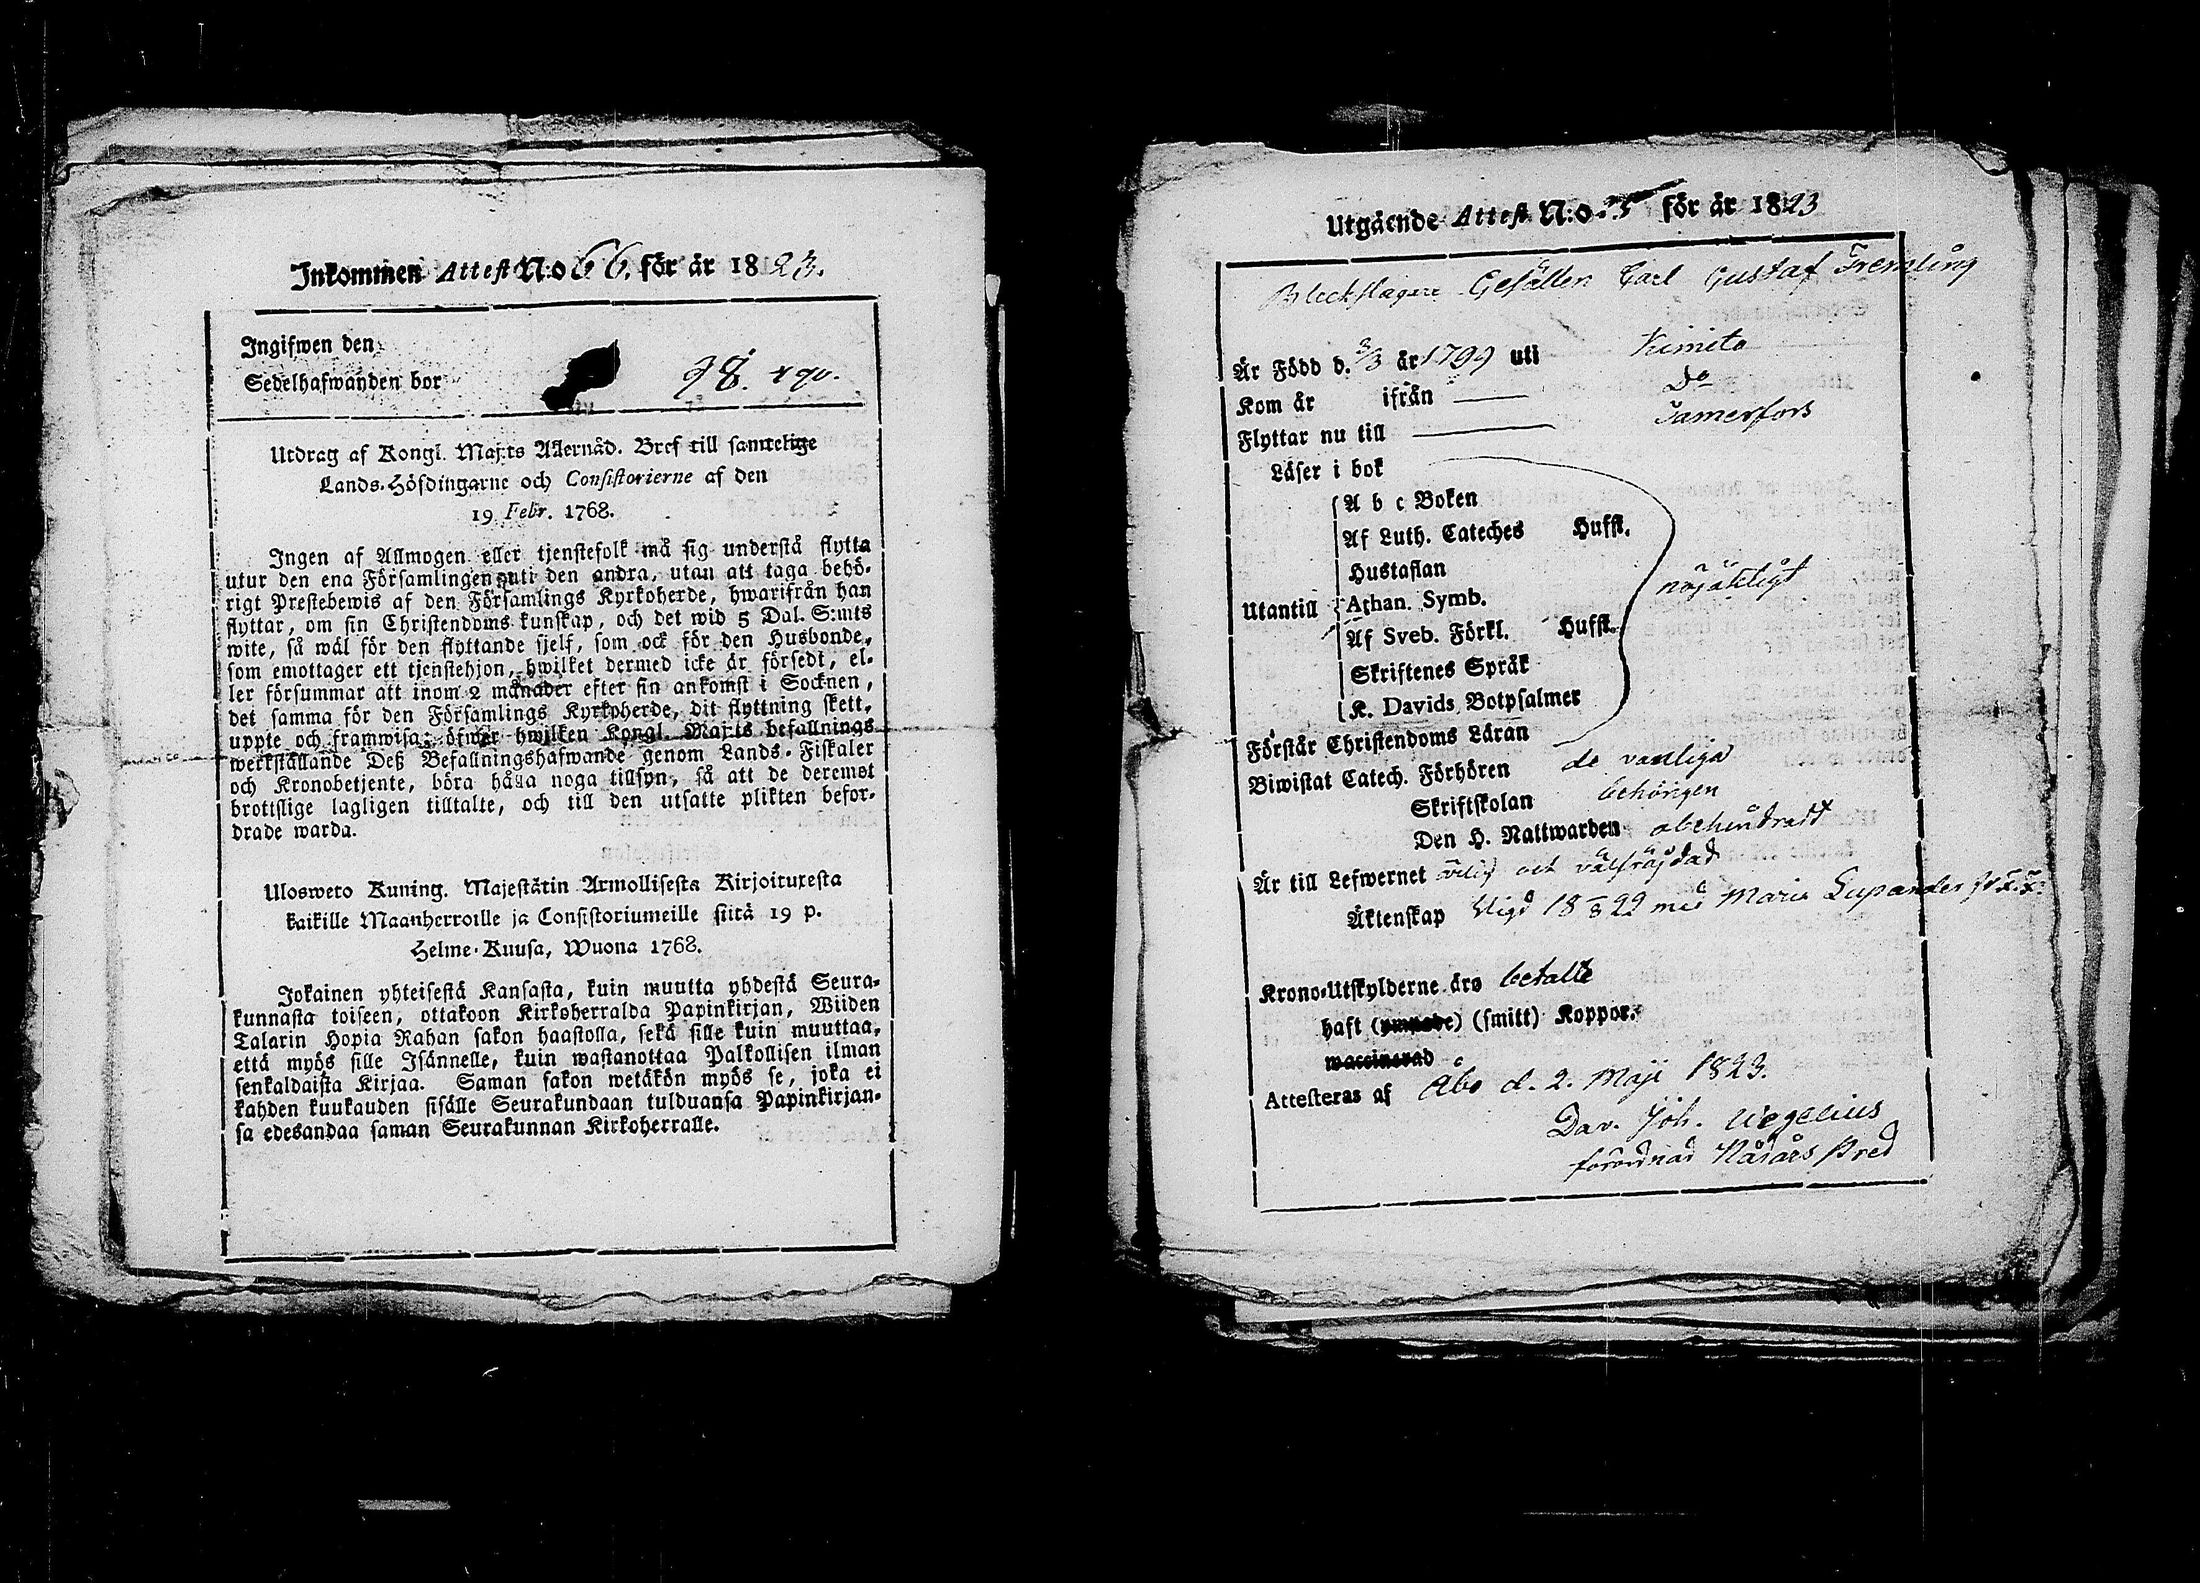 Inkommen Attest N:o 66. för år 1823.
Ingifwen den
Sedelhafwanden bor 98. 490.
Utdrag af Kongl. Maj:ts Allernåd. Bref till samtelige
Lands-Höfdingarne och Consistorierne af den
19 Febr. 1768.
Ingen af Allmogen eller tjenstefolk må sig understå flytta
utur den ena Församlingen uti den andra, utan att taga behö-
rigt Prestebewis af den Församlings Kyrkoherde, hwarifrån han
flyttar, om sin Christendoms kunskap, och det wid 5 Dal. S:mts
wite, så wäl för den flyttande sjelf, som ock för den Husbonde,
som emottager ett tjenstehjon, hwilket dermed icke är försedt, el-
ler försummar att inom 2 månader efter sin ankomst i Socknen,
det samma för den Församlings Kyrkoherde, dit flyttning skett,
uppte och framwisa; öfwer hwilken Kongl. Maj:ts befallnings
werkställande Deß Befallningshafwande genom Lands-Fiskaler
och Kronobetjente, böra hålla noga tillsyn, så att de deremot
brottslige lagligen tilltalte, och till den utsatte plikten befor-
drade warda.
Ulosweto Kuning. Majestätin Armollisesta Kirjoituxesta
kaikille Maanherroille ja Consistoriumeille siitä 19 p.
Helme-Kuusa, Wuona 1768.
Jokainen yhteisestä Kansasta, kuin muutta yhdestä Seura-
kunnasta toiseen, ottakoon Kirkoherralda Papinkirjan, Wiiden
Talarin Hopia Rahan sakon haastolla, sekä sille kuin muuttaa,
että myös sille Isännelle, kuin wastanottaa Palkollisen ilman
senkaldaista Kirjaa. Saman sakon wetäkön myös se, joka ei
kahden kuukauden sisälle Seurakundaan tulduansa Papinkirjan-
sa edesandaa saman Seurakunnan Kirkoherralle.
Utgående Attest N:o för år 1823
Bleckslagare Gesällen Carl Gustaf Fremling
Är Född d. 2/3 år 1799 uti Kimito
Kom år ifrån Do
Flyttar nu till Tamerfors
Läser i bok
A b c Boken
Af Luth. Cateches Hufst.
Hustaflan
Utantill Athan. Symb. nöjaktigt
Af Sveb. Förkl. Hufst.
Skriftenes Språk
K. Davids Botpsalmer
Förstår Christendoms Läran
Biwistat Catech. Förhören de vanliga
Skriftskolan behörigen
Den H. Nattwarden obehindradt
Är till Lefwernet ärlig och välfräjdad
Äktenskap Vigd 18 22 med Maria Lupander
Krono-Utskylderne äro betalte
haft (ympade) (smitt) Koppor.
waccinerad
Attesteras af Åbo d. 2. Maji 1823.
Dav. Joh. Wegelius
förordnad Nådårs Pred